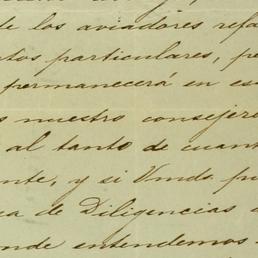 de los aviadores refa
ntos particulares, pe
permanecerá en es
s nuestro consejero
al tanto de cuant
nte, y si Vmds. pu
ea de Diligencias
onde entendemos